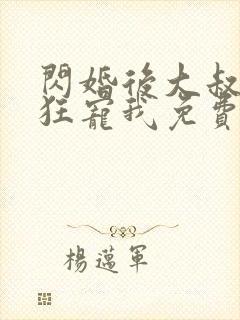 閃婚後大叔
狂寵我免費
楊邁軍